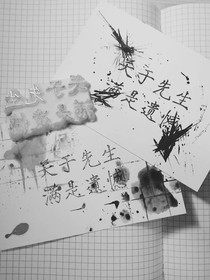 关于先生
满是遗憾
关于先生
满是遗憾